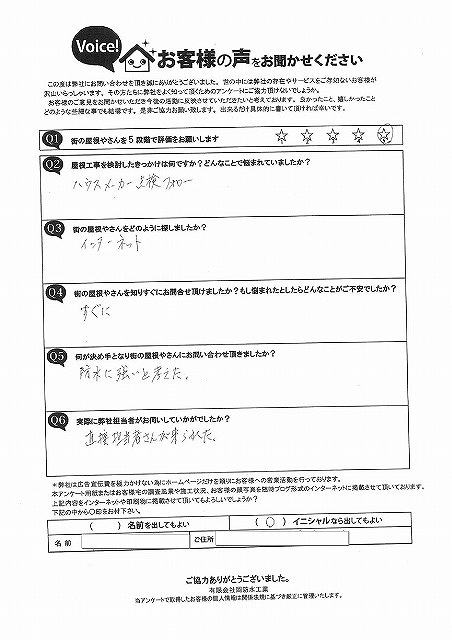 Voice!
お客様の声をお聞かせください
この度は弊社にお問い合わせを頂き誠にありがとうございました。世の中には弊社の存在やサービスをご存知ないお客様が
沢山いらっしゃいます。その方たちに弊社をよく知って頂くためのアンケートにご協力頂けないでしょうか。
お客様のご意見をお聞かせいただき今後の活動に反映させていただきたいと考えております。良かったこと、嬉しかったこと
どのような些細な事でも結構です。是非ご協力お願い致します。出来るだけ具体的に書いて頂ければ幸いです。
Q1 街の屋根やさんを5段階で評価をお願いします ☆ ☆ ☆ ☆ ☆
Q2 屋根工事を検討したきっかけは何ですか？どんなことで悩まれていましたか？
ハウスメーカー点検フォロー
Q3 街の屋根やさんをどのように探しましたか？
インターネット
Q4 街の屋根やさんを知りすぐにお問合せ頂けましたか？もし悩まれたとしたらどんなことがご不安でしたか？
すぐに
Q5 何が決め手となり街の屋根やさんにお問い合わせ頂きましたか？
防水に強いと考えた。
Q6 実際に弊社担当者がお伺いしていかがでしたか？
直接担当者さんが来られた。
＊弊社は広告宣伝費を極力かけない為にホームページだけを頼りにお客様への営業活動を行っております。
本アンケート用紙またはお客様宅の調査風景や施工状況、お客様の顔写真を随時ブログ形式のインターネットに掲載させて頂いております。
上記内容をインターネットや印刷物に掲載させて頂いてもよろしいでしょうか？
下記の中から〇印をお付下さい。
（ ）名前を出してもよい （〇）イニシャルなら出してもよい
名前 ご住所
ご協力ありがとうございました。
有限会社岡防水工業
当アンケートで取得したお客様の個人情報は関係法規に基づき厳正に管理いたします。